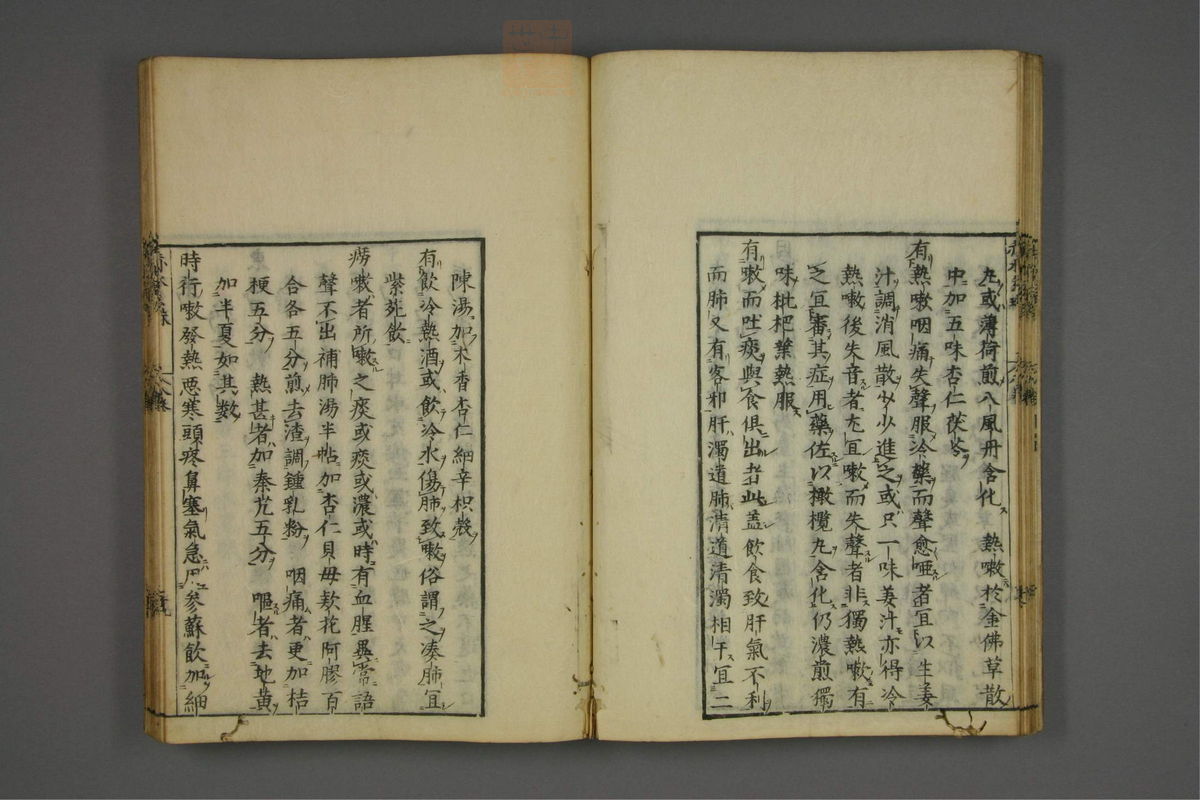 丸或薄荷煎八風丹含化　熱嗽於金佛草散
中加五味杏仁茯苓
有熱嗽咽痛失聲服冷藥而聲愈啞者宜以生姜
汁調消風散少少進之或只一味姜汁亦得冷
熱嗽後失音者尤宜嗽而失聲者非獨熱嗽有
之宜審其症用藥佐以橄欖丸含化仍濃煎獨
味枇杷葉熱服
有嗽而吐痰與食俱出者此盖飲食致肝氣不利
而肺又有客邪肝濁道肺清道清濁相干宜二
陳湯加木香杏仁細辛枳殼
有飲冷熱酒或飲冷水傷肺致嗽俗謂之凑肺宜
紫菀飲
癆嗽者所嗽之痰或痰或濃或時有血腥臭異常語
聲不出補肺湯半帖加杏仁貝母款花阿膠百
合各五分煎去渣調鍾乳粉　咽痛者更加桔
梗五分　熱甚者加秦艽五分　嘔者去地黄
加半夏如其數
時行嗽發熱悪寒頭疼鼻塞氣急用參蘇飲加細